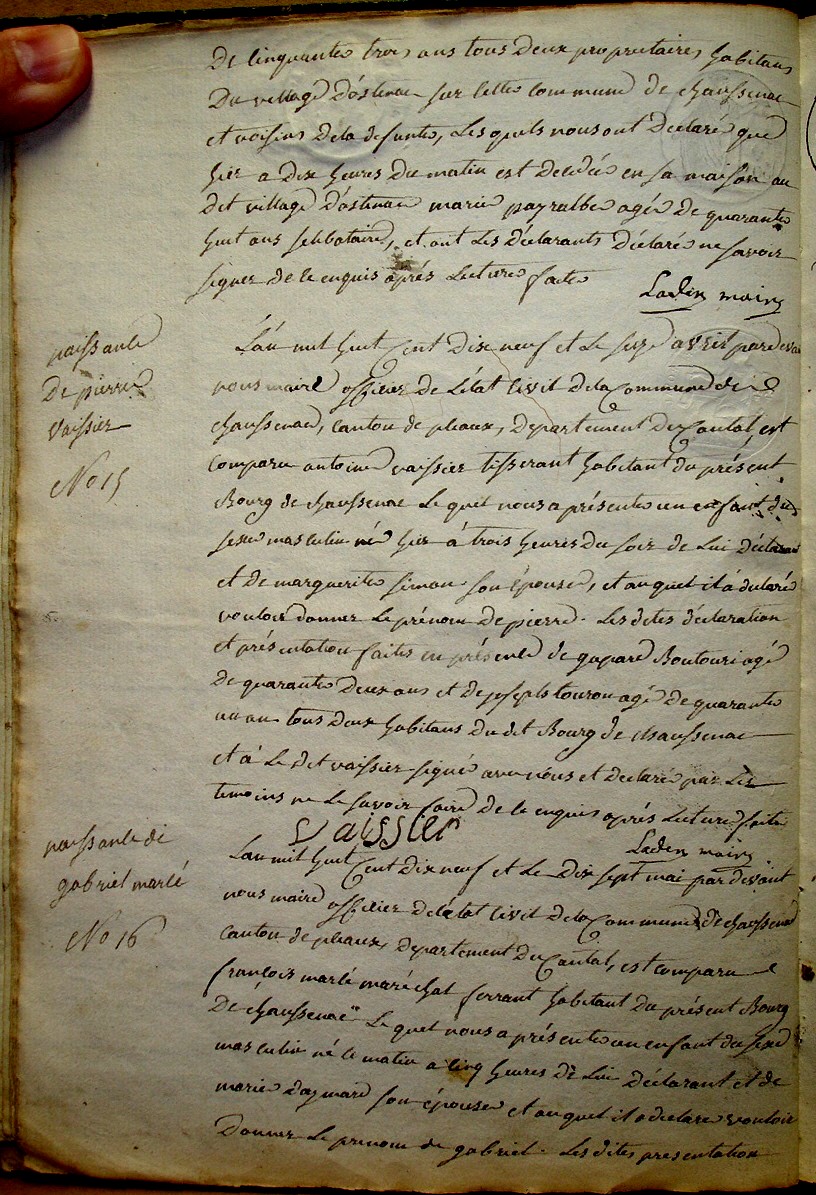 De cinquante trois ans tous deux propriétaires habitans
Du village d'ostenac sur cette commune de chaussenac
et voisins de la defunte, Lesquels nous ont Declaré que
hier a dix heures du matin est decedée en sa maison au
dit village d'ostenac marie payralbe agée de quarante
huit ans selibataire, et ont Les déclarants déclaré ne savoir
signer de ce enquis après Lecture faite
Laden maire
naissance
De pierre
Vaissier
No 15
L'an mil huit Cent Dix neuf et Le seize avril pardevant
nous maire officier de L'état Civil de la Commune de
chaussenac, canton de pleaux, Département du Cantal, est
comparu antoine vaissier tisserant habitant du présent
Bourg de chaussenac Le quel nous a présente un enfant du
sexe masculin né hier à trois heures du soir de Lui déclarant
et de marguerite simon son épouse, et auquel il à declaré
vouloir donner Le prénom de pierre. Les dites déclaration
et présentation faites en présence de gapard Boutouri agé
De quarante Deux ans et de joseph touron agé de quarante
un an tous deux habitans du dit Bourg de chaussenac
et à Le dit vaissier signé avec nous et declaré par Les
temoins ne Le savoir faire de ce enquis après Lecture faite
Vaissier
Laden maire
naissance de
gabriel marlé
No 16
L'an mil huit Cent dix neuf et Le Dix sept mai pardevant
nous maire officier de L'état civil de la Commune de chaussenac
Canton de pleaux, Departement du Cantal, est comparu
françois marlé maréchal ferrant habitant du présent Bourg
De chaussenac Le quel nous a présente un enfant du sexe
masculin né le matin a cinq heures de Lui Déclarant et de
marie Daymard son épouse et auquel il a declaré vouloir
Donner Le prenom de gabriel. Les dites presentation